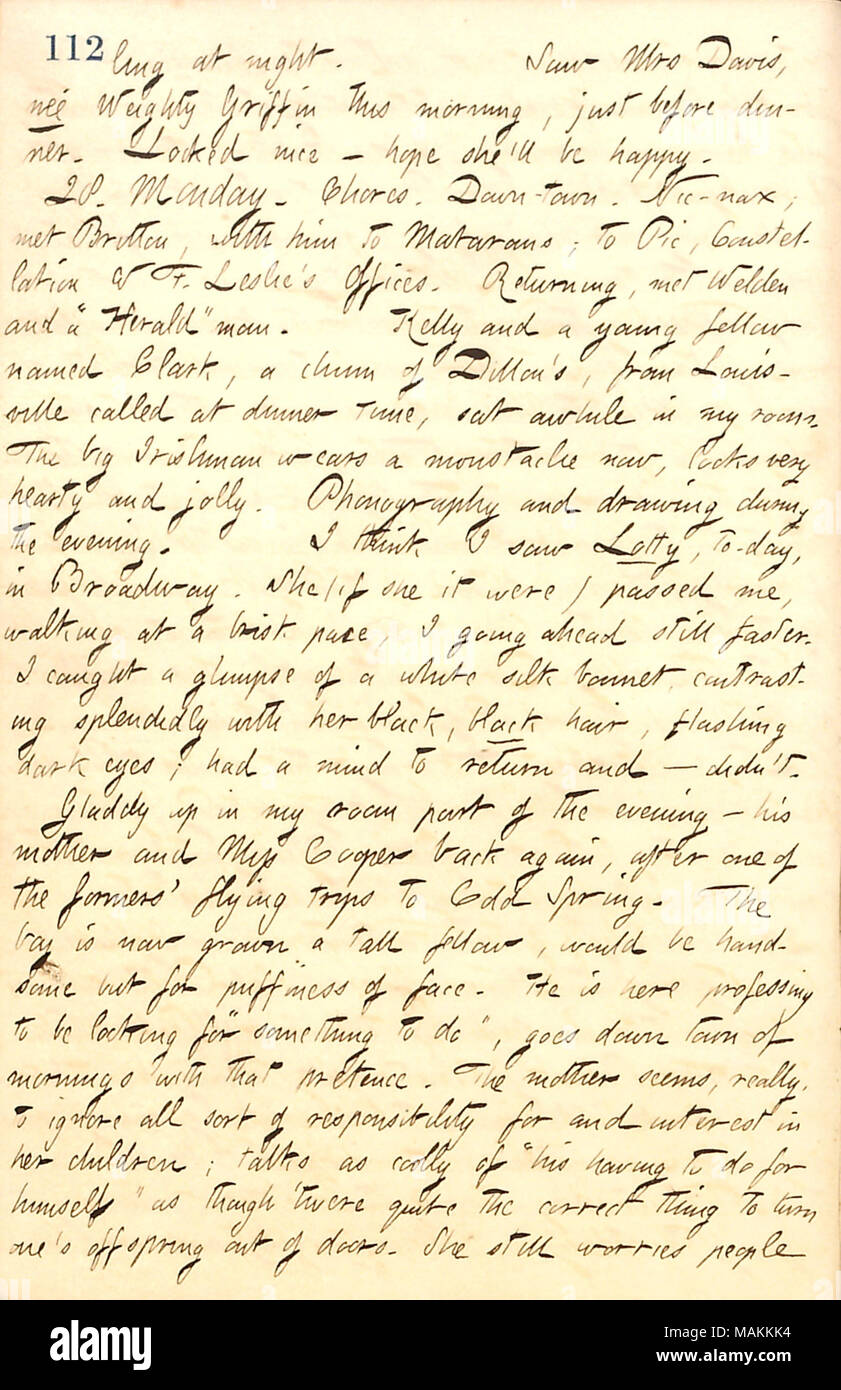 112
ling at night. Saw Mrs Davis,
neé Weighty Griffin this morning, just before din-
ner. Looked nice — hope she'll be happy.
28. Monday. Chores. Down-town. Nic-nax;
met Britton, with him to Mataran's; to Pic, Constel-
lation & F. Leslie's Offices. Returning, met Welden
and a "Herald" man. Kelly and a young fellow
named Clark, a chum of Dillon's, from Louis-
ville called at dinner time, sat awhile in my room.
The big Irishman wears a moustache now, looks very
hearty and jolly. Phonography and drawing during
the evening. I think I saw Lotty, to-day,
in Broadway. She (if she it were) passed me,
walking at a brisk pace, I going ahead still faster.
I caught a glimpse of a white silk bonnet contrast-
ing splendidly with her black, black hair, flashing
dark eyes; had a mind to return and — didn't.
Gladdy up in my room part of the evening — his
mother and Miss Cooper back again, after one of
the formers' flying trips to Cold Spring. The
boy is now grown a tall fellow, would be hand-
some but for puffiness of face. He is here professing
to be looking for "something to do", goes down town of
mornings with that pretence. The mother seems, really,
to ignore all sort of responsibility for and interest in
her children; talks as coolly of "his having to do for
himself" as though 'twere quite the correct thing to turn
one's offspring out of doors. She still worries people
alamy
Image ID: MAKKK4
www.alamy.com